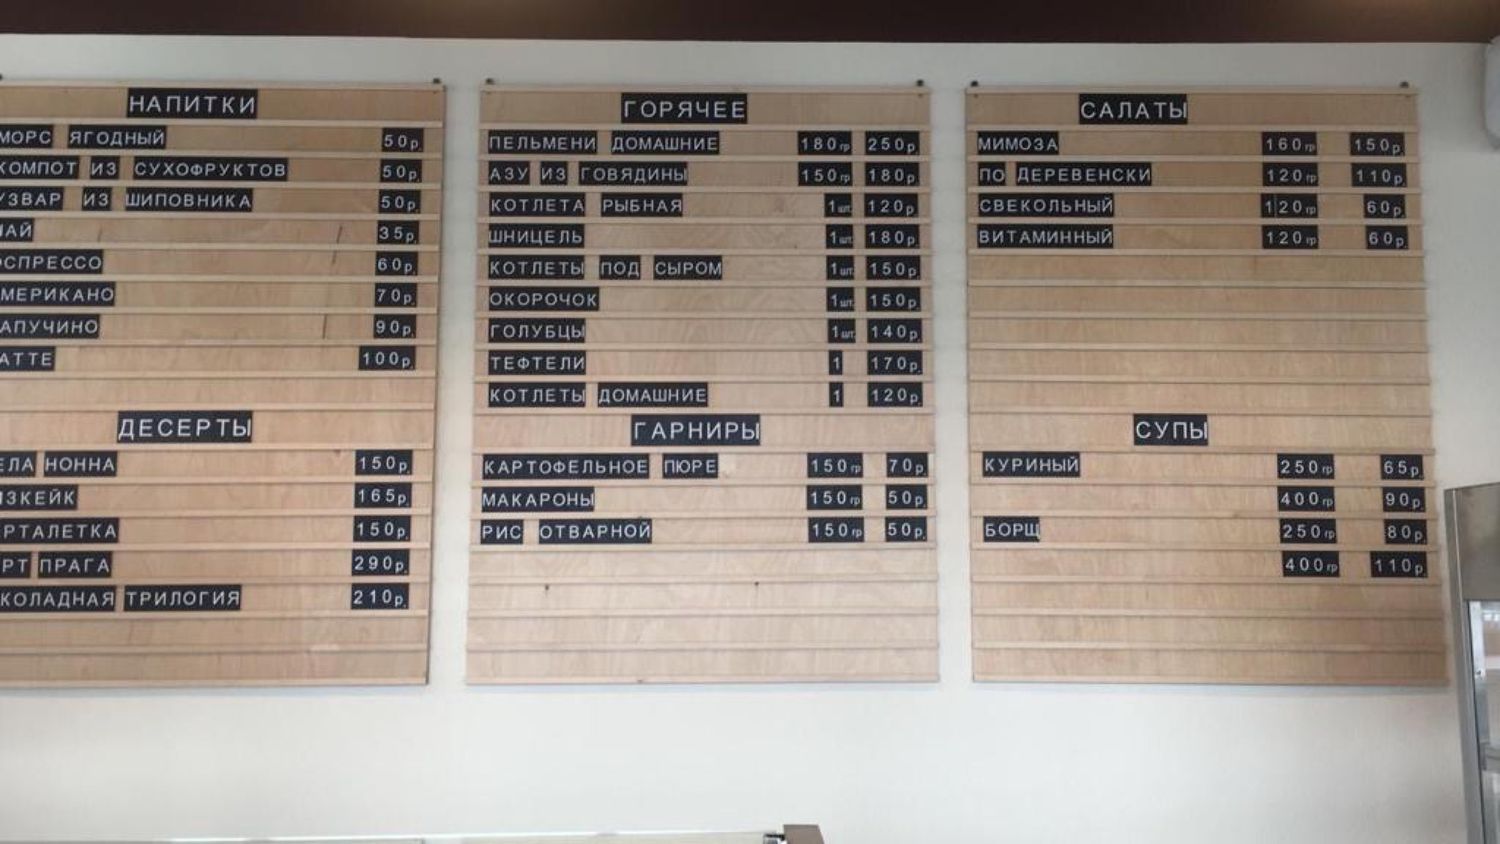 НАПИТКИ
МОРС ЯГОДНЫЙ 50р.
КОМПОТ ИЗ СУХОФРУКТОВ 50р.
УЗВАР ИЗ ШИПОВНИКА 50р.
ЧАЙ 35р.
ЭСПРЕССО 60р.
АМЕРИКАНО 70р.
КАПУЧИНО 90р.
ЛАТТЕ 100р.
ДЕСЕРТЫ
НОННА 150р.
ЧИЗКЕЙК 165р.
ТАРТАЛЕТКА 150р.
ТОРТ ПРАГА 290р.
ШОКОЛАДНАЯ ТРИЛОГИЯ 210р.
ГОРЯЧЕЕ
ПЕЛЬМЕНИ ДОМАШНИЕ 180гр 250р.
АЗУ ИЗ ГОВЯДИНЫ 150гр 180р.
КОТЛЕТА РЫБНАЯ 1шт. 120р.
ШНИЦЕЛЬ 1шт. 180р.
КОТЛЕТЫ ПОД СЫРОМ 1шт. 150р.
ОКОРОЧОК 1шт. 150р.
ГОЛУБЦЫ 1шт. 140р.
ТЕФТЕЛИ 1 170р.
КОТЛЕТЫ ДОМАШНИЕ 1 120р.
ГАРНИРЫ
КАРТОФЕЛЬНОЕ ПЮРЕ 150гр 70р.
МАКАРОНЫ 150гр 50р.
РИС ОТВАРНОЙ 150гр 50р.
САЛАТЫ
МИМОЗА 160гр 150р.
ПО ДЕРЕВЕНСКИ 120гр 110р.
СВЕКОЛЬНЫЙ 120гр 60р.
ВИТАМИННЫЙ 120гр 60р.
СУПЫ
КУРИНЫЙ 250гр 65р.
400гр 90р.
БОРЩ 250гр 80р.
400гр 110р.